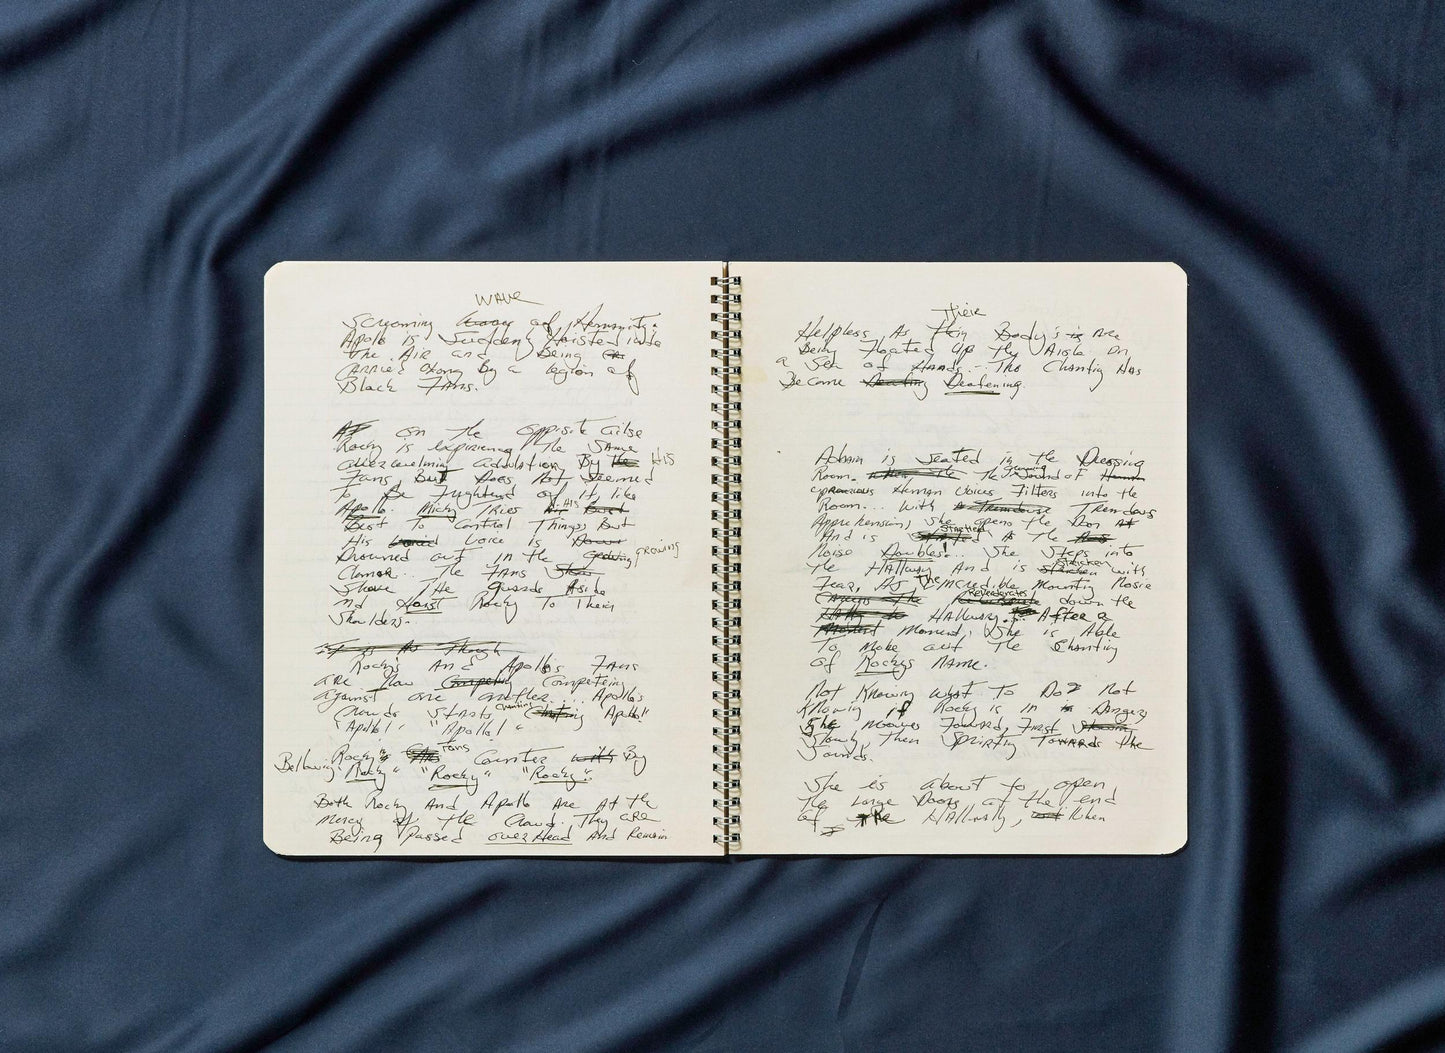 wave
Screaming of Humanity.
Apollo is Suddenly Hoisted into
The Air and Being
Carried Along By a legion of
Black Fans.
on the opposite
Rocky is Experiencing The Same
overwhelming adulation By the HIS
Fans But Does Not Seemed
To Be Frightend of it, like
Apollo. Micky Tries His
Best To Control Things, But
His voice is
Drowned out in the growing growing
Clamor... The Fans
Shove The guards Aside
And Hoist Rocky To Their
Shoulders.
it is As Though
Rocky's And Apollo's Fans
are Now Competing
against one another... Apollo's
Crowds Starts chanting Apollo!
"Apollo! "Apollo! "
Rocky's Fans Counter with By
Bellowing. "Rocky" "Rocky" "Rocky"
Both Rocky And Apollo Are At the
mercy of the Crowd. They are
Being passed overHead And Remain
Their
Helpless As They Body's is Are
Being Floated Up the Aisle On
a Sea of Hands.. The Chanting Has
Become Deafening.
Adrain is Seated in the Dressing
Room. when the The Sound of Human
Human Voices Filters into the
Room... With Tremendous
Apprehension, She opens the Door
And is Startled As The
Noise Doubles!... She Steps into
The Hallway And is Stricken with
Fear, As The Incredible mounting Nosie
Reveberates down the
Hallway... After a
Moment Moment, She is Able
To Make out The Chanting
of Rockys Name.
Not Knowing What To Do? Not
Knowing if Rocky is in Danger,
She Moves Forward, First
Slowly, Then Spriting Towards the
Sounds.
She is about to open
The Large Doors at the end
of the Hallway, When